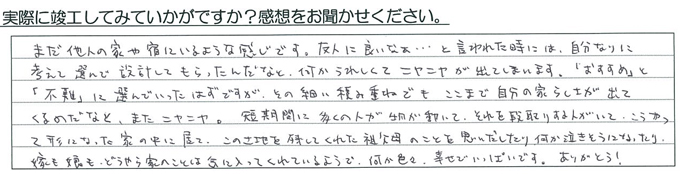 実際に竣工してみていかがですか？感想をお聞かせください。
まだ他人の家や宿にいるような感じです。友人に良いなぁ…と言われた時には、自分なりに
考えて選んで設計してもらったんだなと、何かうれしくてニヤニヤが出てしまいます。「おすすめ」と
「不難」に選んでいったはずですが、その細い積み重ねでもここまで自分の家らしさが出て
くるのだなと、またニヤニヤ。短期間に多くの人が物が動いて、それを段取りする人がいて、こうやっ
て形になった家の中に居て、この土地を残してくれた祖父母のことを思いだしたり何か泣きそうになったり、
嫁も娘も、どうやら家のことは気に入ってくれているようで、何か色々、幸せでいっぱいです。ありがとう！